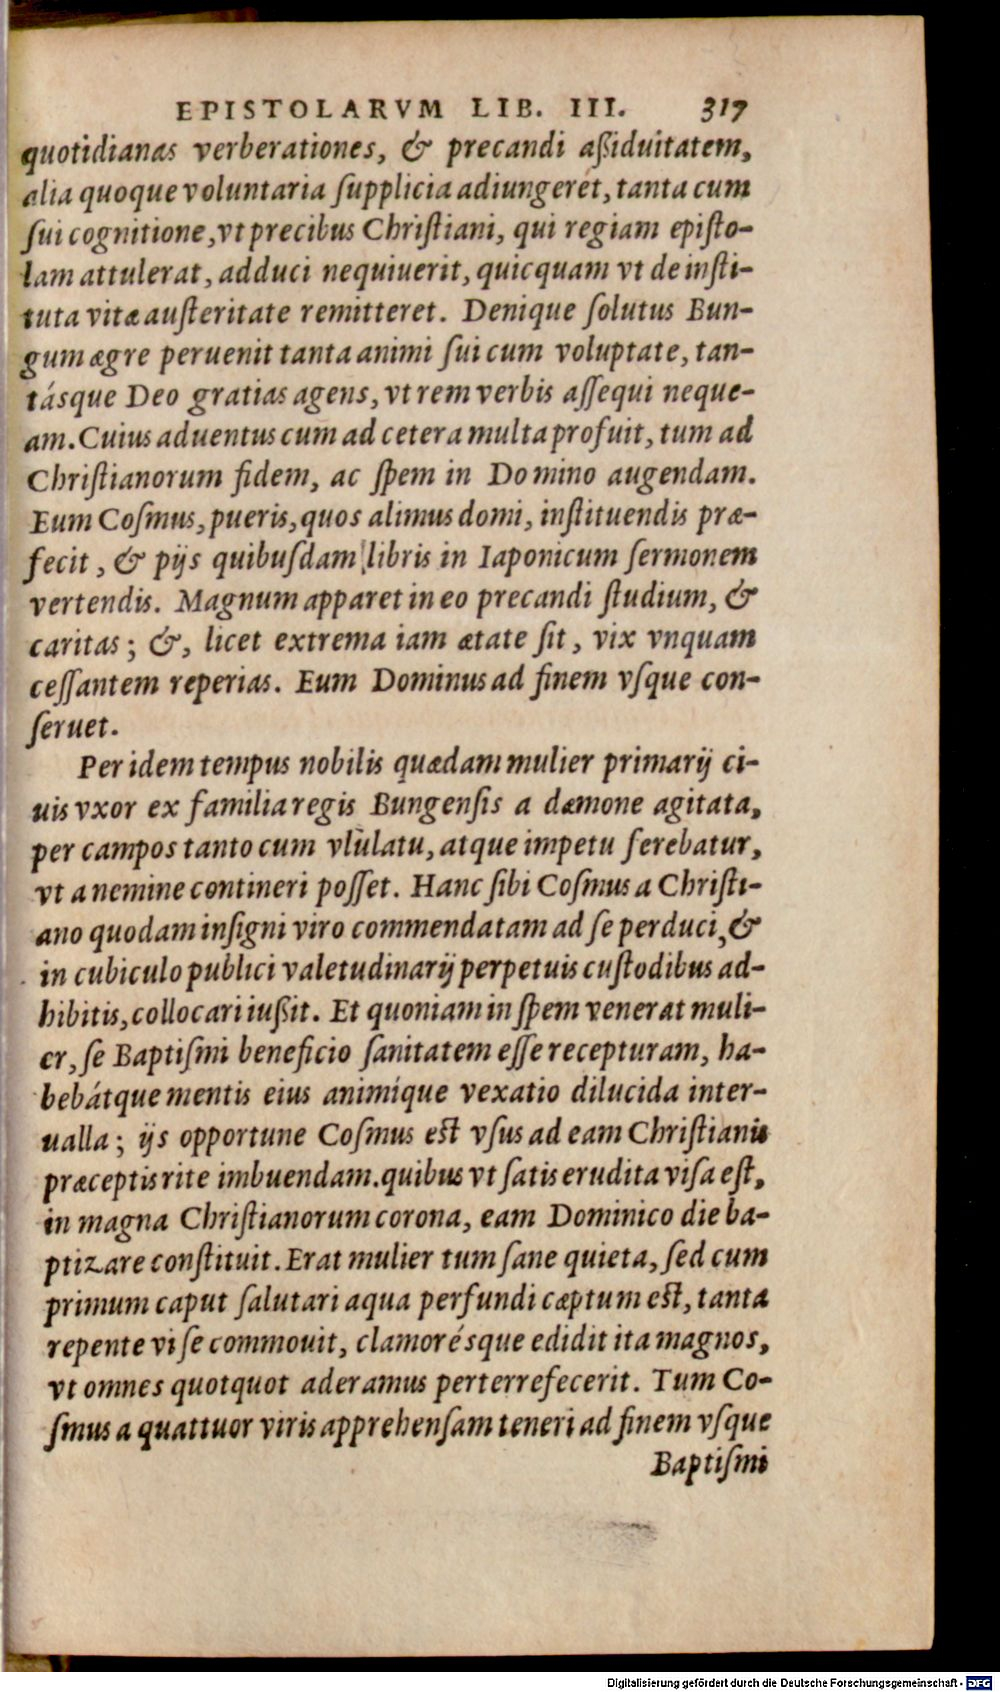 EPISTOLARVM LIB. III. 317
quotidianas verberationes, & precandi aßiduitatem,
alia quoque voluntaria ſupplicia adiungeret, tanta cum
ſui cognitione, vt precibus Chriſtiani, qui regiam epiſto-
lam attulerat, adduci nequiuerit, quicquam vt de inſti-
tuta vitæ auſteritate remitteret. Denique ſolutus Bun-
gum ægre peruenit tanta animi ſui cum voluptate, tan-
tásque Deo gratias agens, vt rem verbis aſſequi neque-
am. Cuius aduentus cum ad cetera multa profuit, tum ad
Chriſtianorum fidem, ac ſpem in Domino augendam.
Eum Coſmus, pueris, quos alimus domi, inſtituendis præ-
fecit, & pijs quibuſdam libris in Iaponicum ſermonem
vertendis. Magnum apparet in eo precandi ſtudium, &
caritas; &, licet extrema iam ætate ſit, vix vnquam
ceſſantem reperias. Eum Dominus ad finem vſque con-
ſeruet.
Per idem tempus nobilis quædam mulier primarij ci-
uis vxor ex familia regis Bungenſis a dæmone agitata,
per campos tanto cum vlùlatu, atque impetu ferebatur,
vt a nemine contineri poſſet. Hanc ſibi Coſmus a Chriſti-
ano quodam inſigni viro commendatam ad ſe perduci, &
in cubiculo publici valetudinarij perpetuis cuſtodibus ad-
hibitis, collocari iußit. Et quoniam in ſpem venerat muli-
er, ſe Baptiſmi beneficio ſanitatem eſſe recepturam, ha-
bebátque mentis eius animíque vexatio dilucida inter-
ualla; ijs opportune Coſmus eſt vſus ad eam Chriſtianis
præceptis rite imbuendam. quibus vt ſatis erudita viſa eſt,
in magna Chriſtianorum corona, eam Dominico die ba-
ptizare conſtituit. Erat mulier tum ſane quieta, ſed cum
primum caput ſalutari aqua perfundi cæptum eſt, tanta
repente vi ſe commouit, clamorésque edidit ita magnos,
vt omnes quotquot aderamus perterrefecerit. Tum Co-
ſmus a quattuor viris apprehenſam teneri ad finem vſque
Baptiſmi
Digitalisierung gefördert durch die Deutsche Forschungsgemeinschaft - DFG